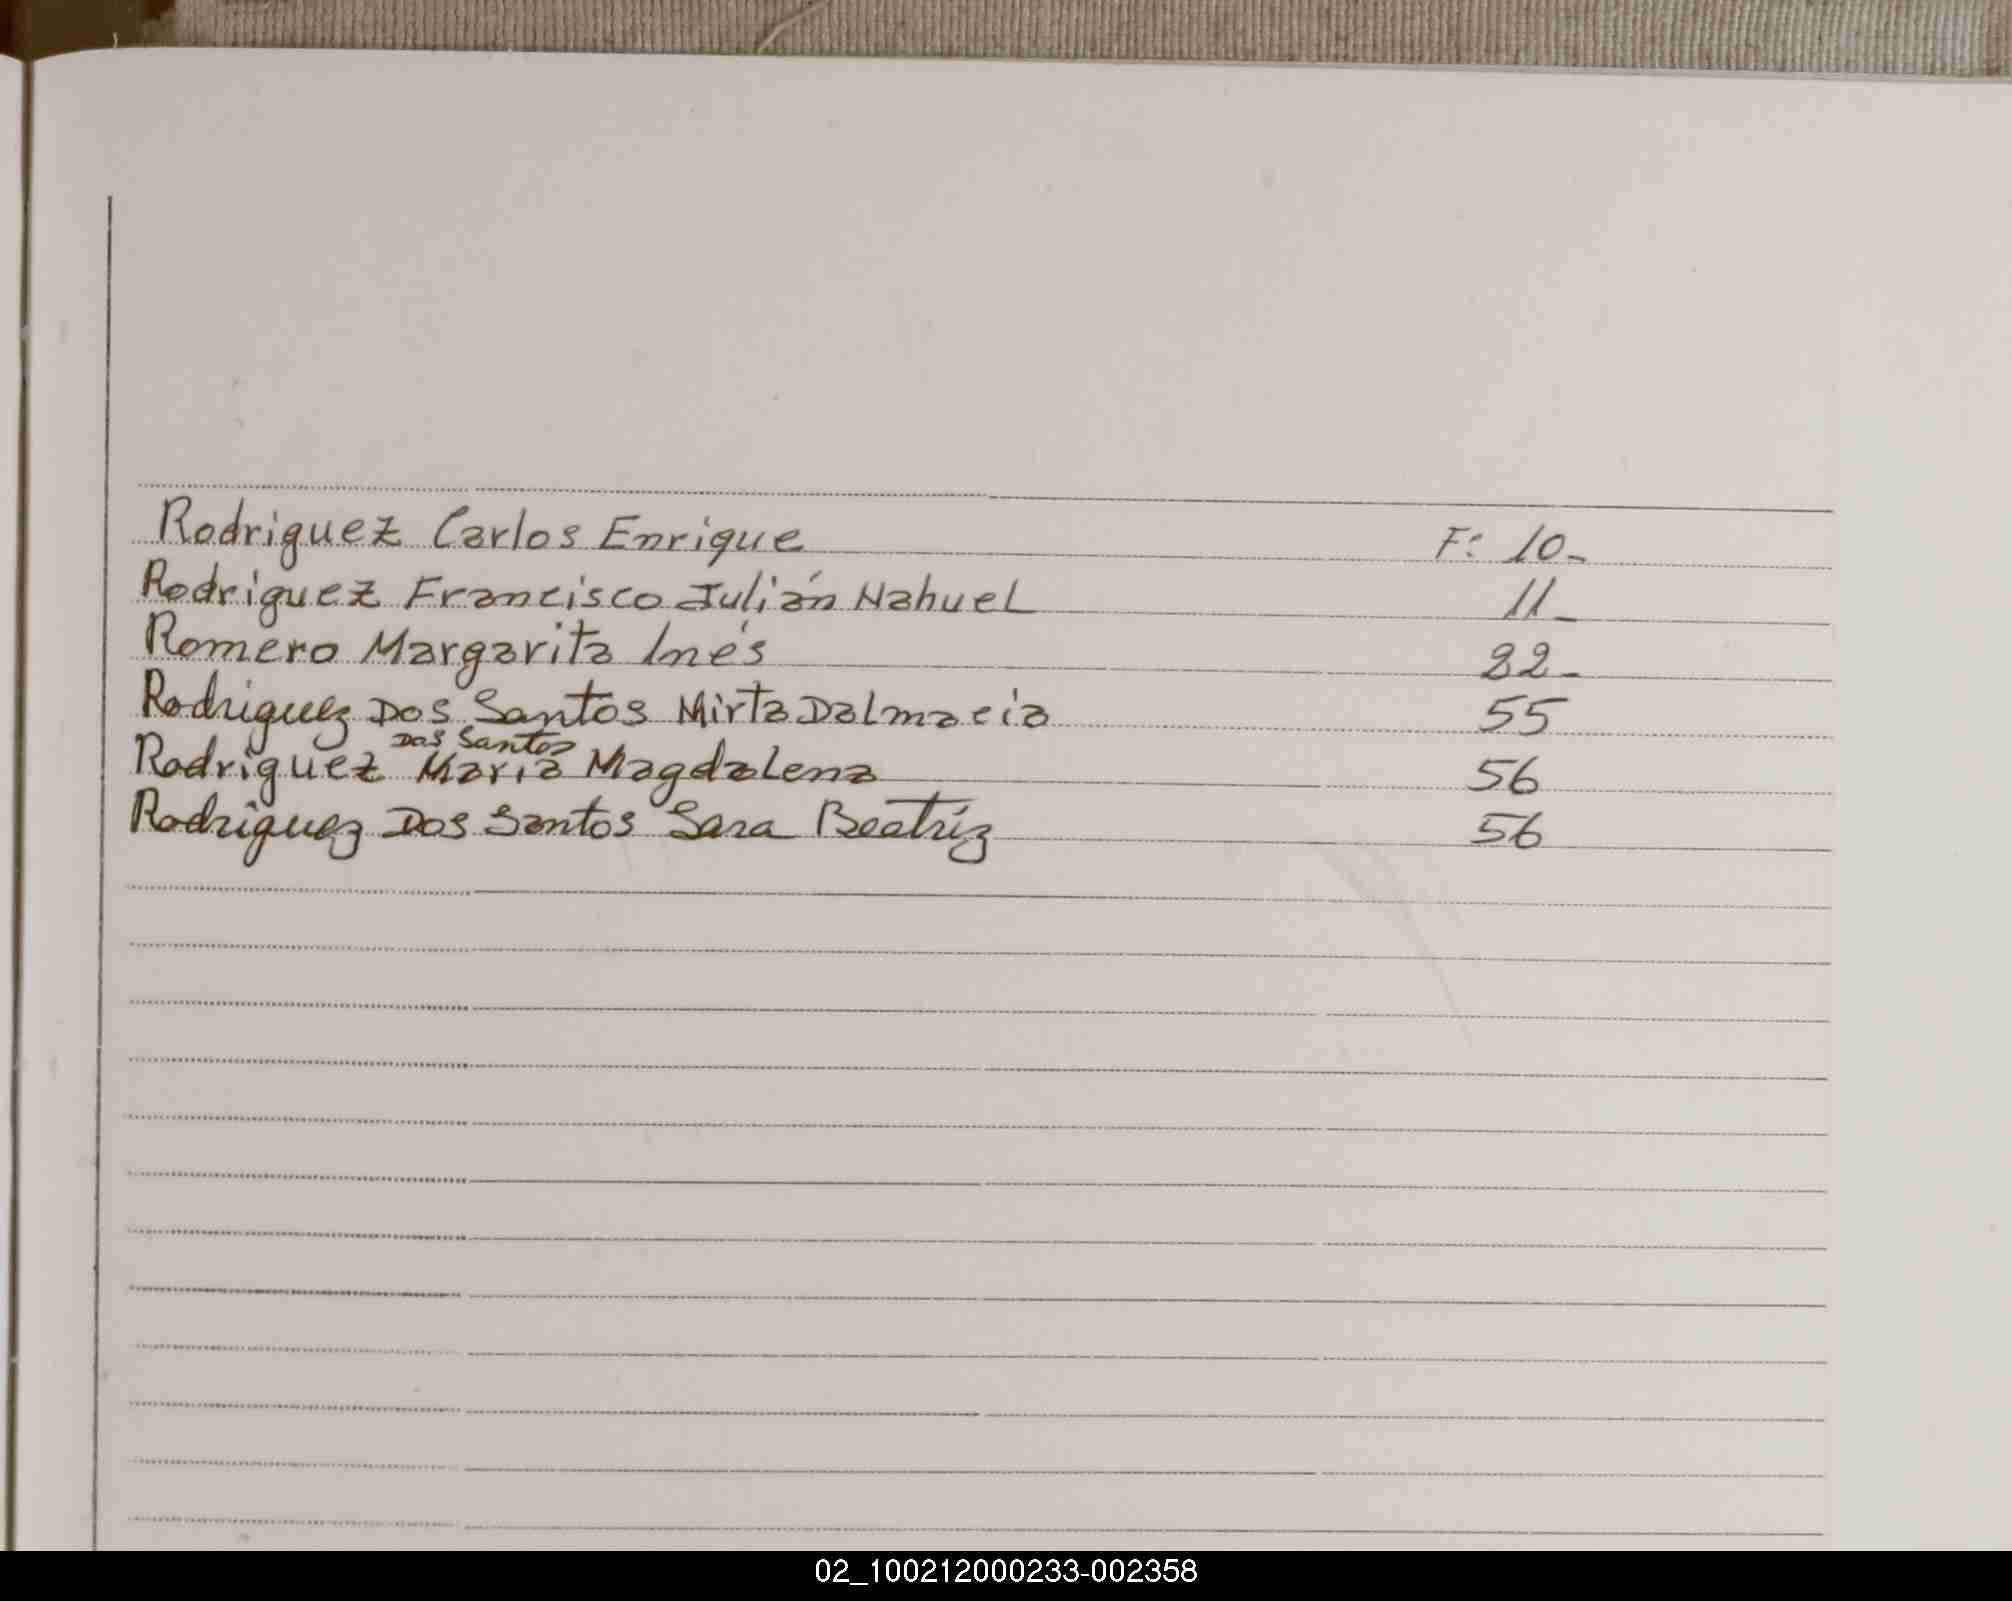 Rodriguez Carlos Enrique F: 10-
Rodriguez Francisco Julián Nahuel 11-
Romero Margarita Inés 22-
Rodriguez Dos Santos Mirta Dalmacia 55
Dos Santos
Rodriguez Maria Magdalena 56
Rodriguez Dos Santos Sara Beatríz 56
02_100212000233-002358